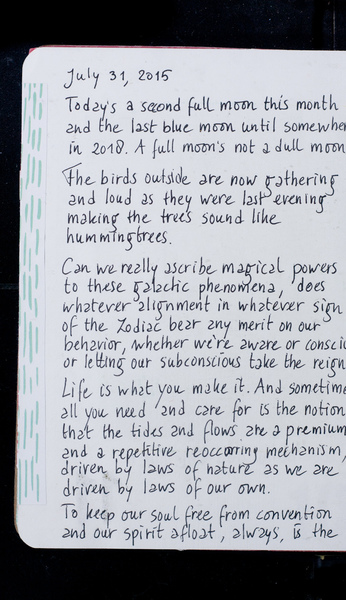 July 31, 2015
Today's a second full moon this month
and the last blue moon until somewher
in 2018. A full moon's not a dull moon
The birds outside are now gathering
and loud as they were last evening
making the trees sound like
hummingtrees.
Can we really ascribe magical powers
to these galactic phenomena, does
whatever alignment in whatever sign
of the Zodiac bear any merit on our
behavior, whether we're aware or consciu
or letting our subconscious take the reign
Life is what you make it. And sometime
all you need and care for is the notion
that the tides and flows are a premium
and a repetitive reoccurring mechanism,
driven by laws of nature as we are
driven by laws of our own.
To keep our soul free from convention
and our spirit afloat, always, is the